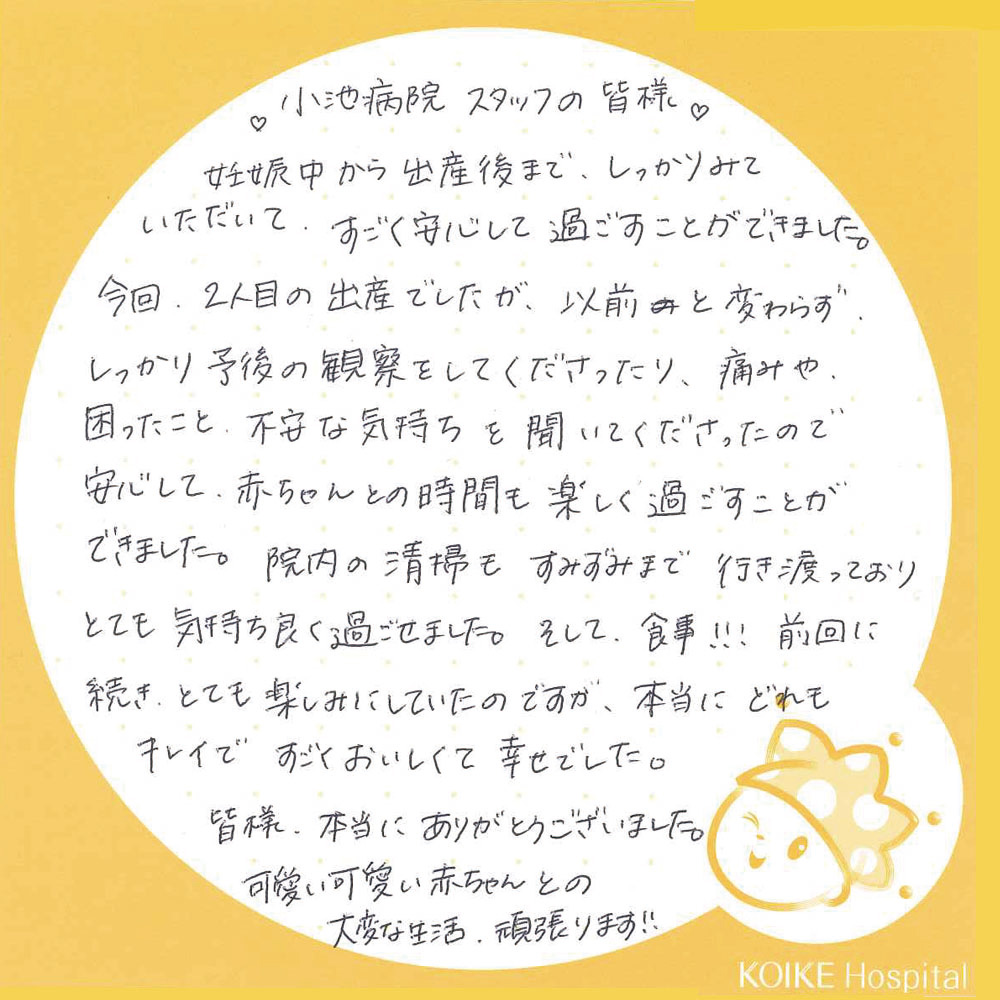 ♡ 小池病院 スタッフの 皆様 ♡
妊娠中から 出産後まで、しっかりみて
いただいて、すごく安心して 過ごすことができました。
今回、2人目の出産でしたが、以前と変わらず、
しっかり予後の観察をしてくださったり、痛みや、
困ったこと、不安な気持ちを聞いてくださったので
安心して、赤ちゃんとの時間も楽しく過ごすことが
できました。院内の清掃も すみずみまで 行き渡っており
とても 気持ち良く過ごせました。そして、食事!!! 前回に
続き、とても楽しみにしていたのですが、本当に どれも
キレイで すごくおいしくて 幸せでした。
皆様、本当に ありがとうございました。
可愛い可愛い赤ちゃんとの
大変な生活、頑張ります!!
KOIKE Hospital